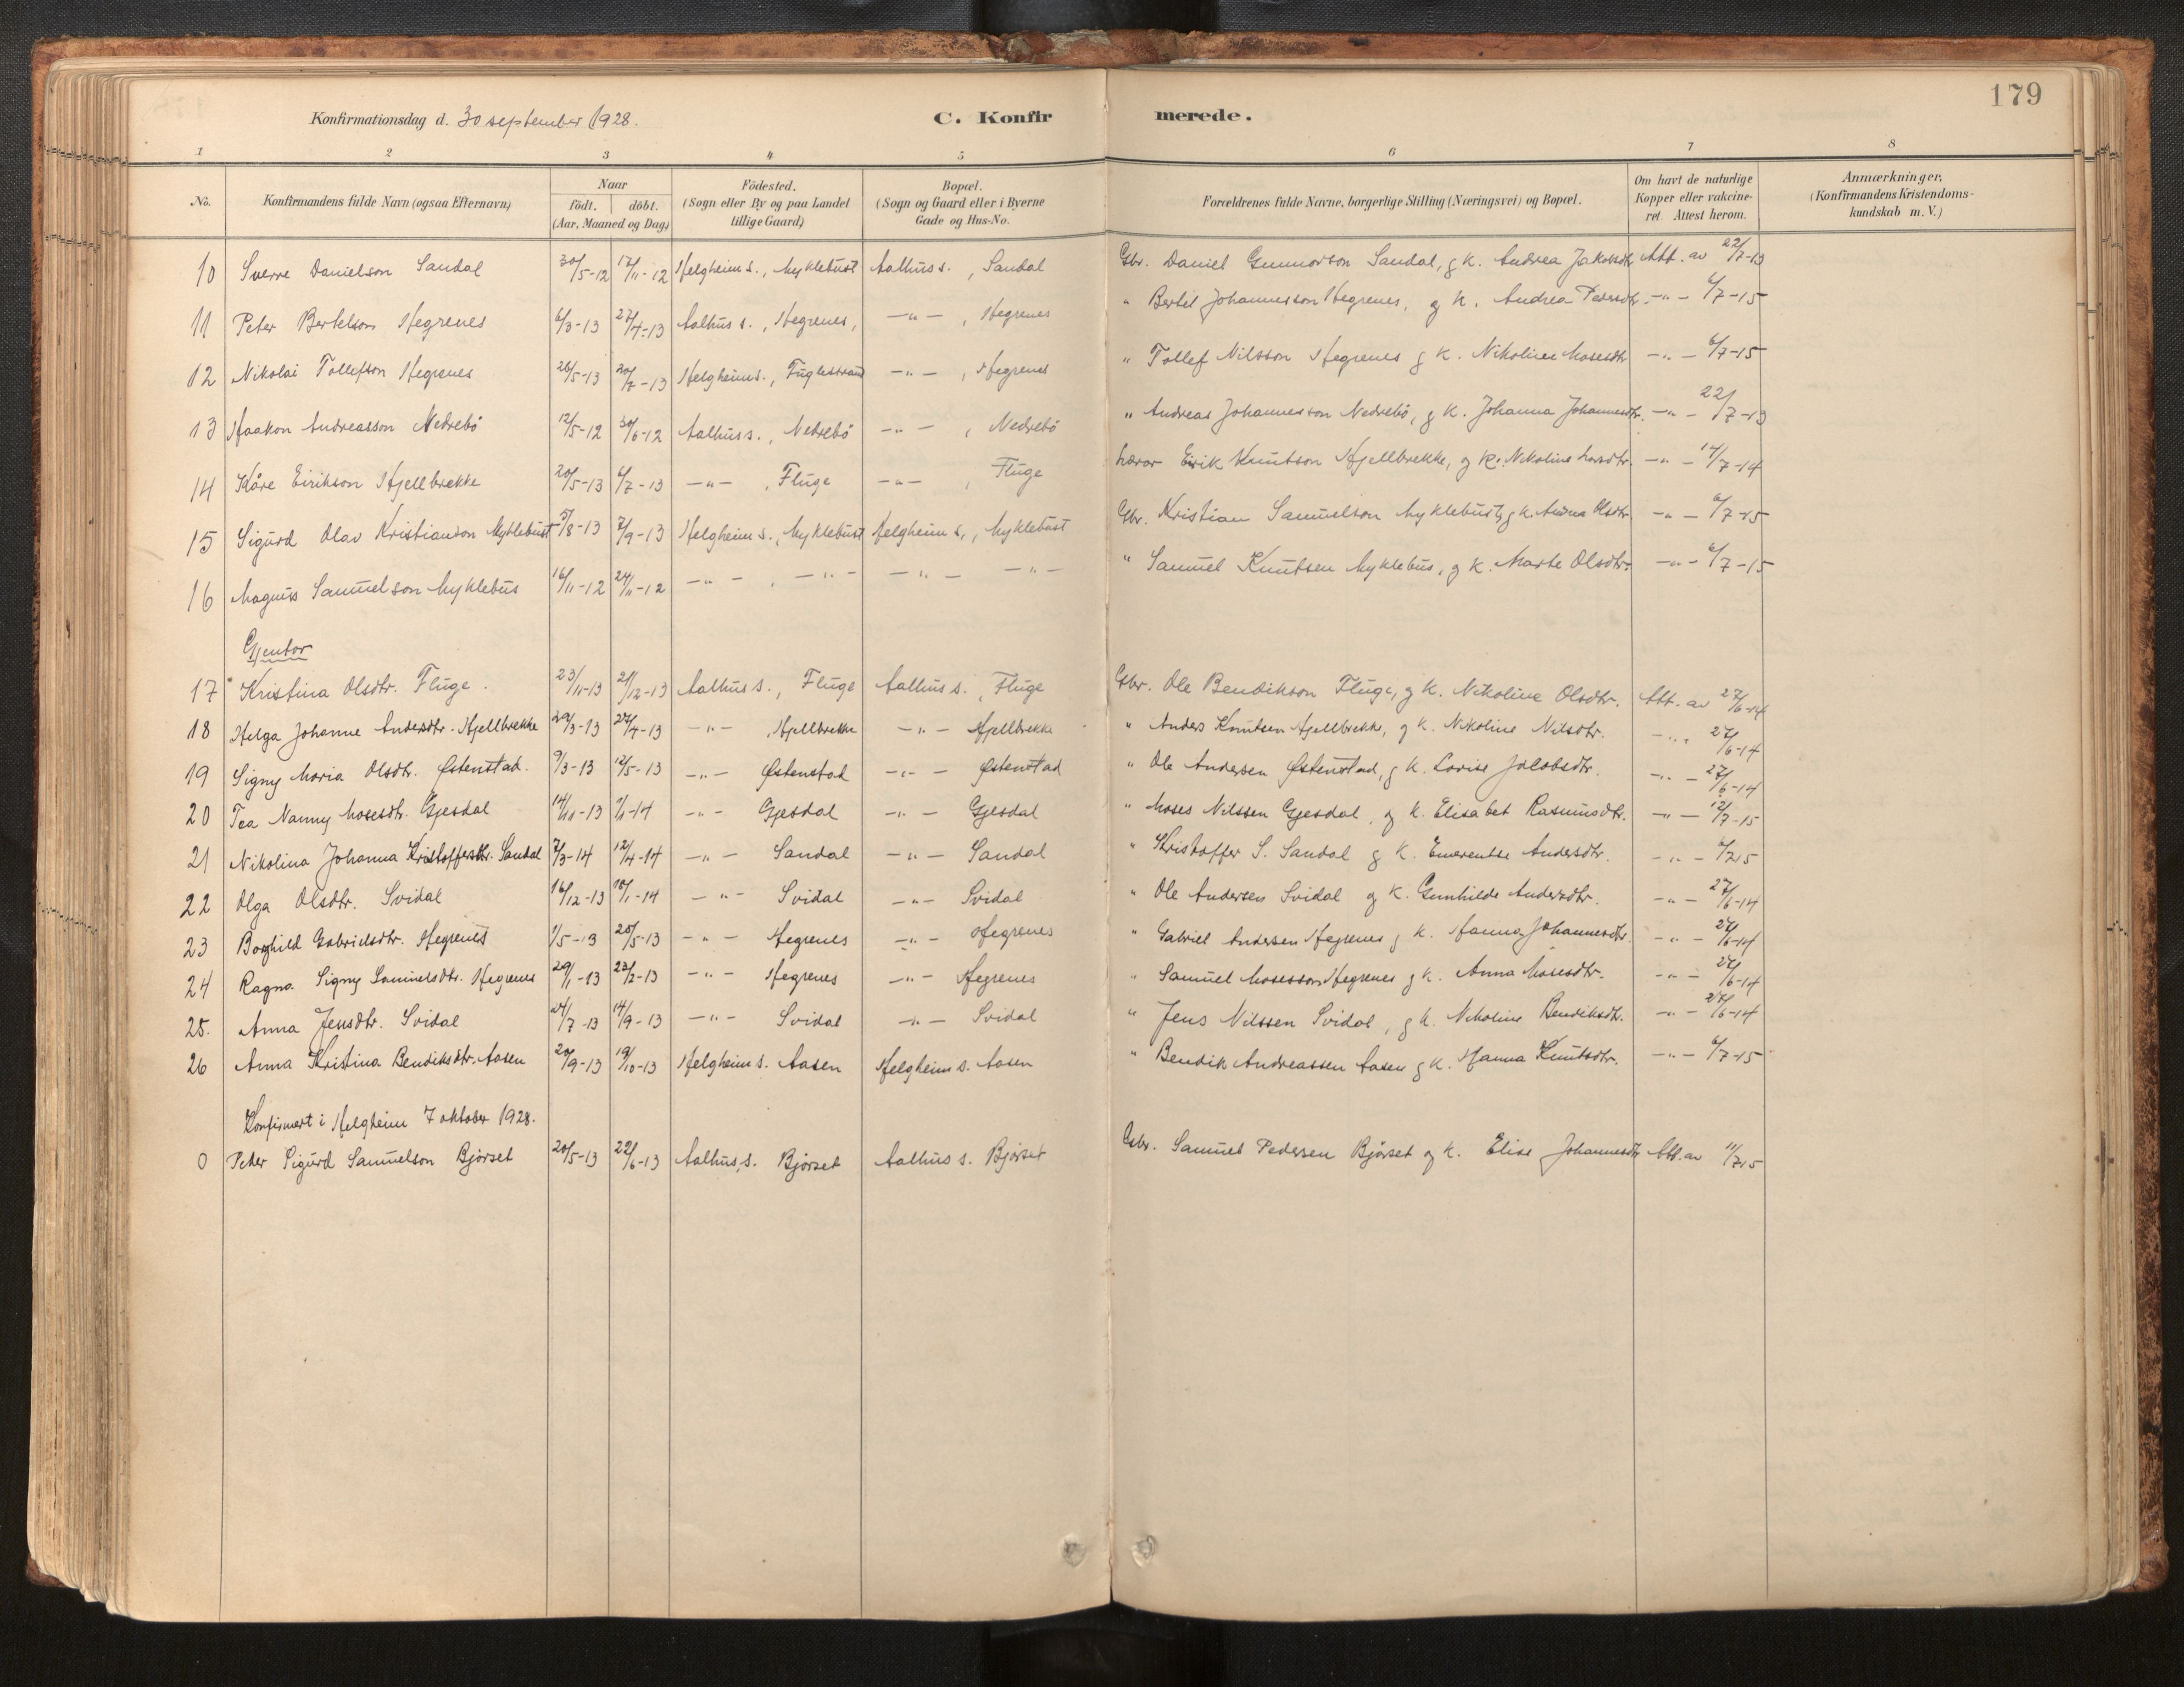 179
Konfirmationsdag d. 30 september 1928. C. Konfirmerede.
1 2 3 4 5 6 7 8
No. Konfirmandens fulde Navn (ogsaa Efternavn) Naar födt. döbt. (Aar, Maaned og Dag.) Födested. (Sogn eller By og paa Landet tillige Gaard) Bopæl. (Sogn og Gaard eller i Byerne Gade og Hus-No. Forældrenes fulde Navne, borgerlige Stilling (Næringsvei) og Bopæl. Om havt de naturlige Kopper eller vakcineret. Attest herom. Anmærkninger. (Konfirmandens Kristendomskundskab m. V.)
10 Sverre Danielson Sandal 30/5-12 17/11-12 Helgheim s., Myklebust Aalhus s., Sandal Gbr. Daniel Gunnarson Sandal, g k. Andrea Jakobsdtr. Att. av 22/7-13
11 Peter Bertelson Hegrenes 6/3-13 27/4-13 Aalhus s., Hegrenes, -"- , Hegrenes " Bertel Johannesson Hegrenes, og k. Andrea Pedersdtr. -"- 6/7-15
12 Nikolai Tollefson Hegrenes 26/5-13 20/7-13 Helgheim s., Fuglestrand -"- , Hegrenes " Tollef Nilsson Hegrenes g k. Nikoline Mosesdtr -"- 6/7-15
13 Haakon Andreasson Nedrebö 12/5-12 30/6-12 Aalhus s., Nedrebö -"- , Nedrebö " Andreas Johannesson Nedrebö, g k. Johanna Johannesdtr. -"- 22/7-13
14 Kåre Eirikson Hjellbrekke 20/5-13 6/7-13 -"- , Fluge -"- , Fluge Lærar Eirik Knutson Hjellbrekke, og k. Nikoline Larsdtr. -"- 14/7-14
15 Sigurd Olav Kristianson Myklebust 3/8-13 7/9-13 Helgheim s., Myklebust Helgheim s., Myklebust Gbr. Kristian Samuelson Myklebust, g k. Andrea Olsdtr. -"- 6/7-15
16 Magnus Samuelson Myklebus 16/11-12 24/11-12 -"- , -"- -"- -"- " Samuel Knutsen Myklebus, g k. Marte Olsdtr. -"- 6/7-15
Gjentor
17 Kristina Olsdtr. Fluge. 23/11-13 21/12-13 Aalhus s., Fluge Aalhus s., Fluge Gbr. Ole Bendikson Fluge, g k. Nikoline Olsdtr. Att. av 27/6-14
18 Helga Johanne Andersdtr. Hjellbrekke 29/3-13 27/4-13 -"- , Hjellbrekke -"- Hjellbrekke " Anders Knutsen Hjellbrekke, g k. Nikoline Nilsdtr. -"- 27/6-14
19 Signy Maria Olsdtr. Østenstad. 9/3-13 12/5-13 -"- Østenstad -"- Østenstad " Ole Andersen Østenstad, g k. Lovise Jakobsdtr. -"- 27/6-14
20 Tea Nanny Mosesdtr. Gjesdal 14/11-13 1/1-14 -"- Gjesdal -"- Gjesdal " Moses Nilssen Gjesdal, og k. Elisabet Rasmusdtr. -"- 12/7-15
21 Nikolina Johanna Kristoffersdtr. Sandal 7/3-14 12/4-14 -"- Sandal -"- Sandal " Kristoffer S. Sandal g k. Emerentse Andersdtr. -"- 6/7-15
22 Olga Olsdtr. Svidal 16/12-13 18/1-14 -"- Svidal -"- Svidal " Ole Andersen Svidal og k. Gunhilde Andersdtr. -"- 27/6-14
23 Borghild Gabrielsdtr. Hegrenes 1/5-13 25/5-13 -"- Hegrenes -"- Hegrenes " Gabriel Andersen Hegrenes g k. Hanna Johannesdtr. -"- 27/6-14
24 Ragna Signy Samuelsdtr. Hegrenes 29/1-13 23/2-13 -"- Hegrenes -"- Hegrenes " Samuel Mosesson Hegrenes g k. Anna Mosesdtr. -"- 27/6-14
25. Anna Jensdtr. Svidal 27/7-13 14/9-13 -"- Svidal -"- Svidal " Jens Nilssen Svidal, g k. Nikoline Bendiksdtr. -"- 27/6-14
26 Anna Kristina Bendiksdtr. Aasen 20/9-13 19/10-13 Helgheim s. Aasen Helgheim s. Aasen " Bendik Andreassen Aasen g k. Hanna Knutsdtr. -"- 6/7-15
Konfirmert i Helgheim 7 oktober 1928.
0 Peter Sigurd Samuelson Bjørset 20/5-13 22/6-13 Aalhus s. Bjørset Aalhus s. Bjørset Gbr. Samuel Pedersen Bjørset og k. Elise Johannesdtr Att. av 11/7-15